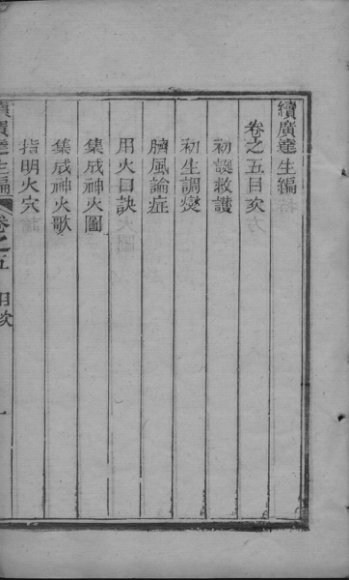 續廣達生編
卷之五目次
初誕救護
初生調燮
臍風論症
用火口訣
集成神火圖
集成神火歌
指明火穴
續廣達生編 卷之五 目次 一